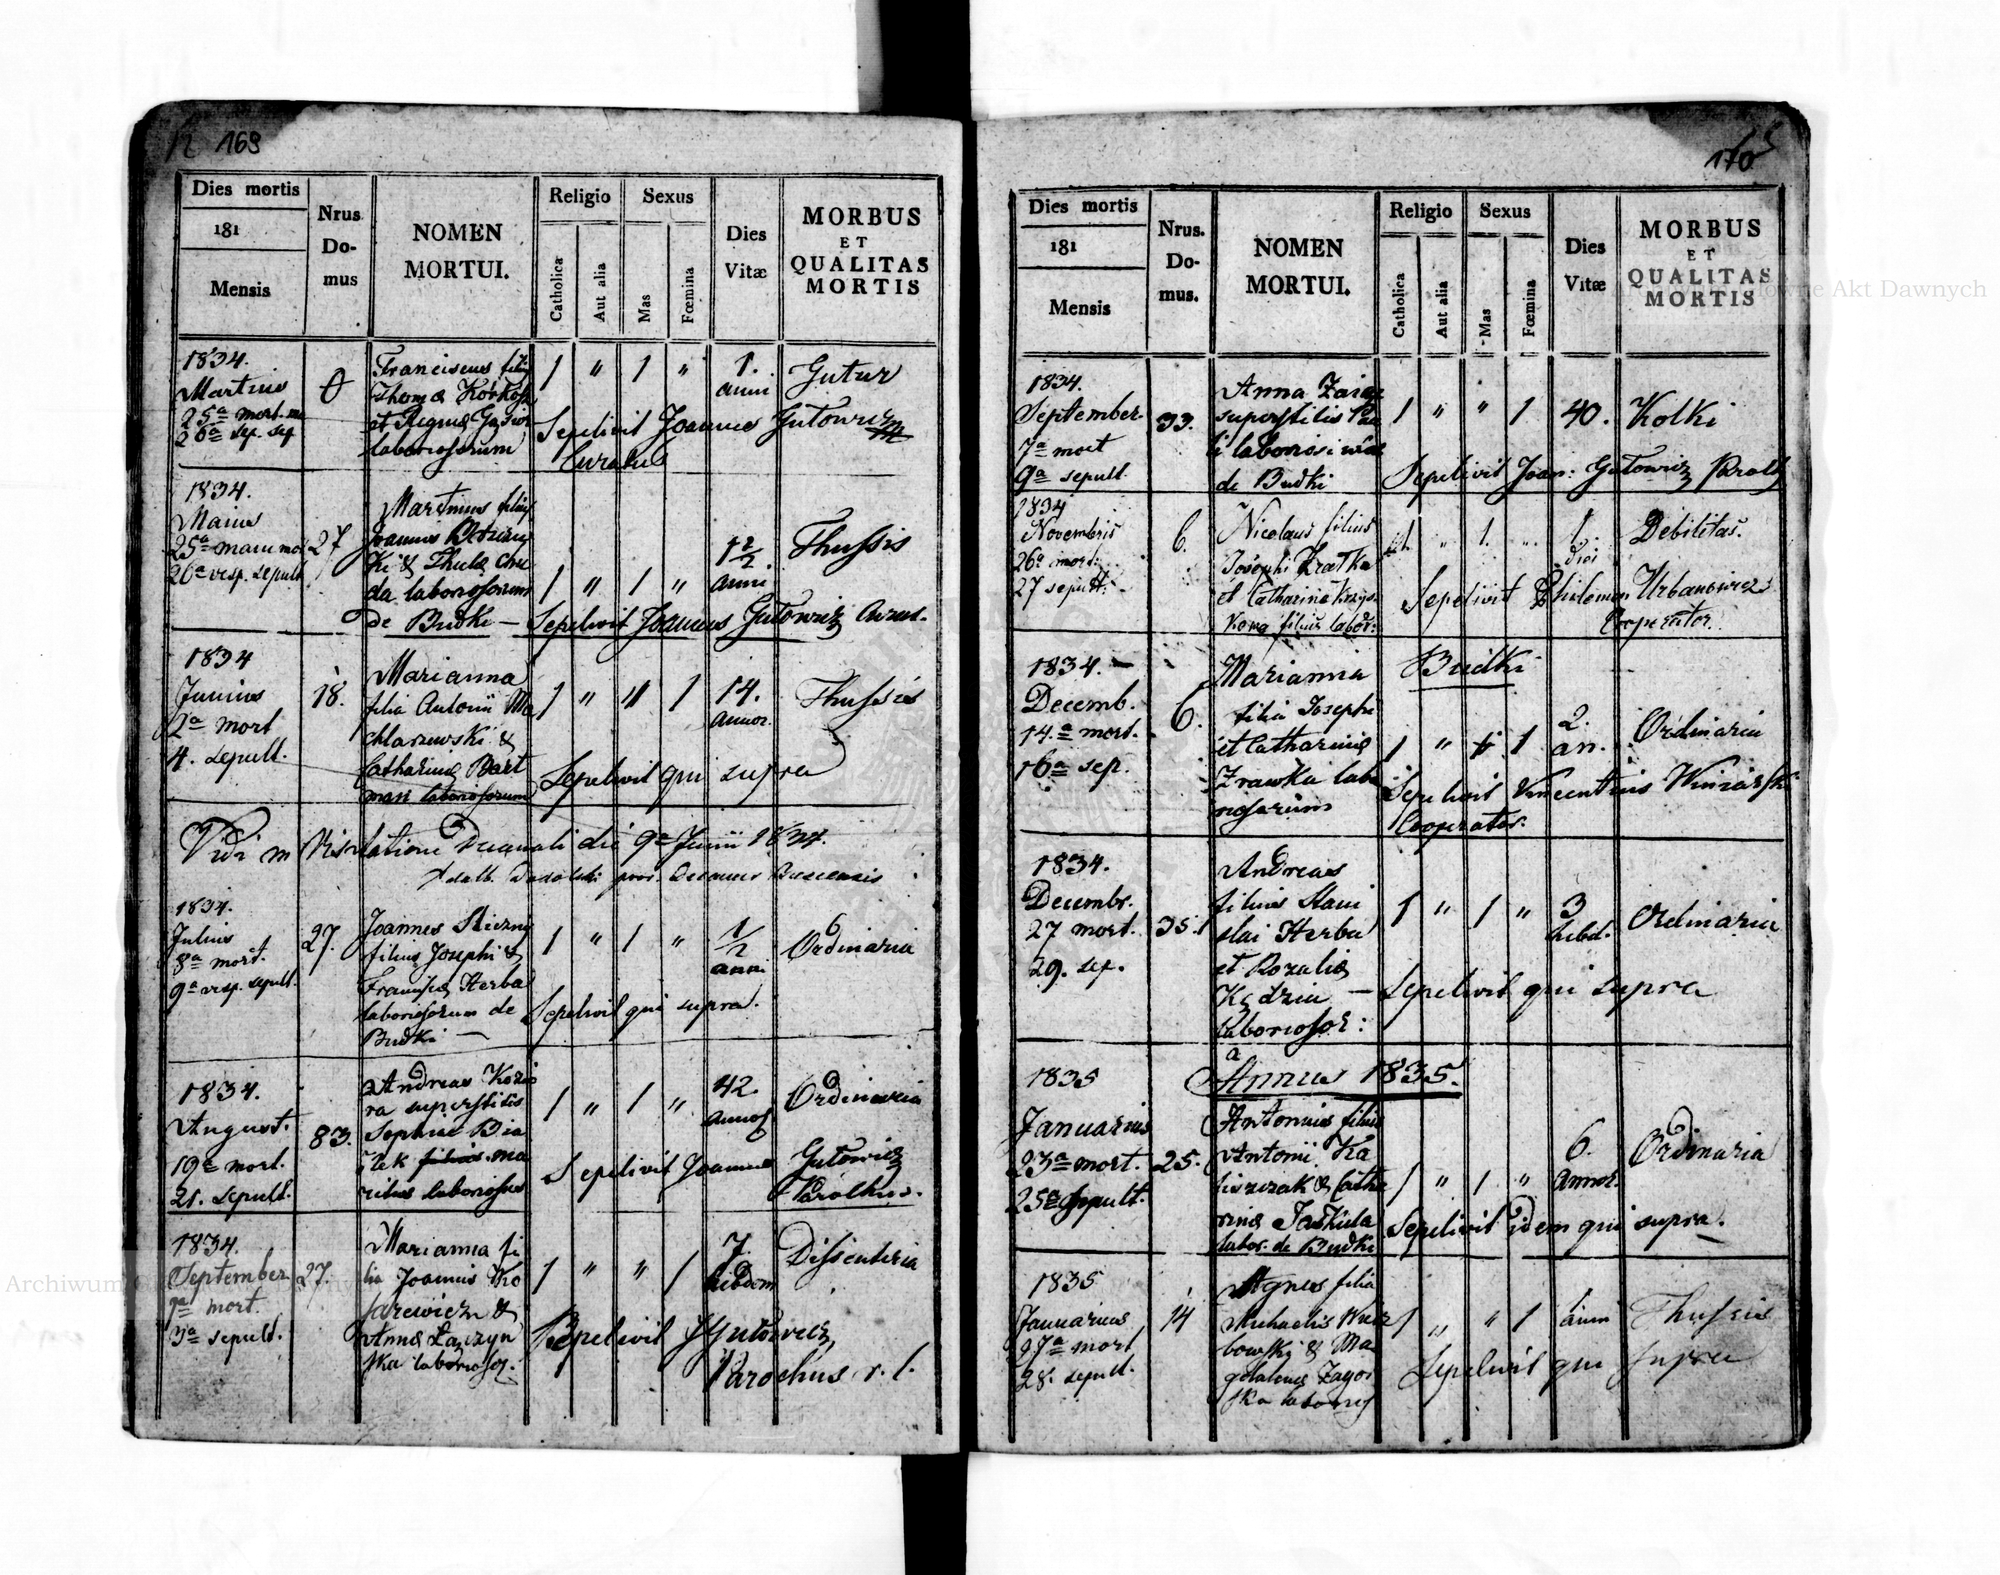 169
Dies mortis
181
Mensis
Nrus
Do-
mus
NOMEN
MORTUI.
Religio
Catholica
Aut alia
Sexus
Mas
Fœmina
Dies
Vitæ
MORBUS
ET
QUALITAS
MORTIS
1834.
Martius
25ª mort.
26ª sep.
0
Franciscus filius
Thomæ
et Reginæ
laboriosorum
1 " 1 "
1.
anni
Gutur
Sepelivit Joannes Gutowicz
Curatus
1834.
Maius
25ª mane mort
26ª vesp. sepult
27
Martinus filius
Joannis
ki & Theclæ
da laboriosorum
de Budki — Sepelivit Joannes Gutowicz Curat.
1 " 1 "
1 1/2
anni
Thussis
1834
Junius
2ª mort
4. sepult.
18.
Marianna
filia Antonii Ma
chlarzewski &
Catharinæ Bart
man laboriosorum
1 " " 1
14.
annor.
Thussis
Sepelivit qui supra
Vidi in Visitatione Decanali die 9ª Junii 1834.
Adalb. Decanus
1834.
Julius
8ª mort.
9ª vesp. sepult.
27.
Joannes
filius Josephi &
Franciscæ Herba
laboriosorum de
Budki —
1 " 1 "
1/2
anni
Ordinaria
Sepelivit qui supra.
1834.
August.
19ª mort.
21. sepult.
83.
Andreas Kozio
ra superstitis
Sophiæ Bia
łek filius ma
ritus laboriosus
1 " 1 "
42.
annos
Ordinaria
Sepelivit Joannes Gutowicz
Parochus.
1834.
September
1ª mort.
3ª sepult.
27.
Marianna fi
lia Joannis Ko
sarewicz &
Annæ Łaczyń
ska laborioso.
1 " " 1
7.
hebdom
Dissenteria
Sepelivit J Gutowicz
Parochus r. l.
170
Dies mortis
181
Mensis
Nrus.
Do-
mus.
NOMEN
MORTUI.
Religio
Catholica
Aut alia
Sexus
Mas
Fœmina
Dies
Vitæ
MORBUS
ET
QUALITAS
MORTIS
1834.
September
7ª mort
9ª sepult.
33.
Anna
superstitis Pau
li laboriosi
de Budki
1 " " 1
40.
Kolki
Sepelivit Joan: Gutowicz
1834
Novembris
26ª mort:
27 sepult:
6.
Nicolaus filius
Josephi Zrałka
et Catharinæ
labor:
1. " 1. "
1.
diei
Debilitas.
Sepelivit Philemon Urbanowicz
Cooperator.
1834. —
Decemb.
14.ª mort.
16ª sep.
6.
Marianna
filia Josephi
et Catharinæ
Zrawka labo
riosorum
Budki
1 " 1
2.
an.
Ordinaria
Sepelivit Vincentius Winiarski
Cooperator.
1834.
Decembr.
27 mort.
29. sep.
35.
Andreas
filius Stani
slai Herba
et Rozaliæ
Kędzia — Sepelivit qui supra
laboriosor:
1 " 1 "
3
hebd.
Ordinaria
Annus 1835.
1835
Januarius
23ª mort.
25ª sepult.
25.
Antonius filius
Antonii Ka
siszczak & Catha
rinæ Jaskuła
labor. de Budki
1 " 1 "
6.
annor.
Ordinaria
Sepelivit idem qui supra.
1835
Januarius
27ª mort
28. sepult.
14
Agnes filia
Michaelis Wierz
bowski & Ma
gdalenæ Zagor
ska laborios
1 " " 1
anni
Thussis
Sepelivit qui supra
Akt Dawnych
Archiwum